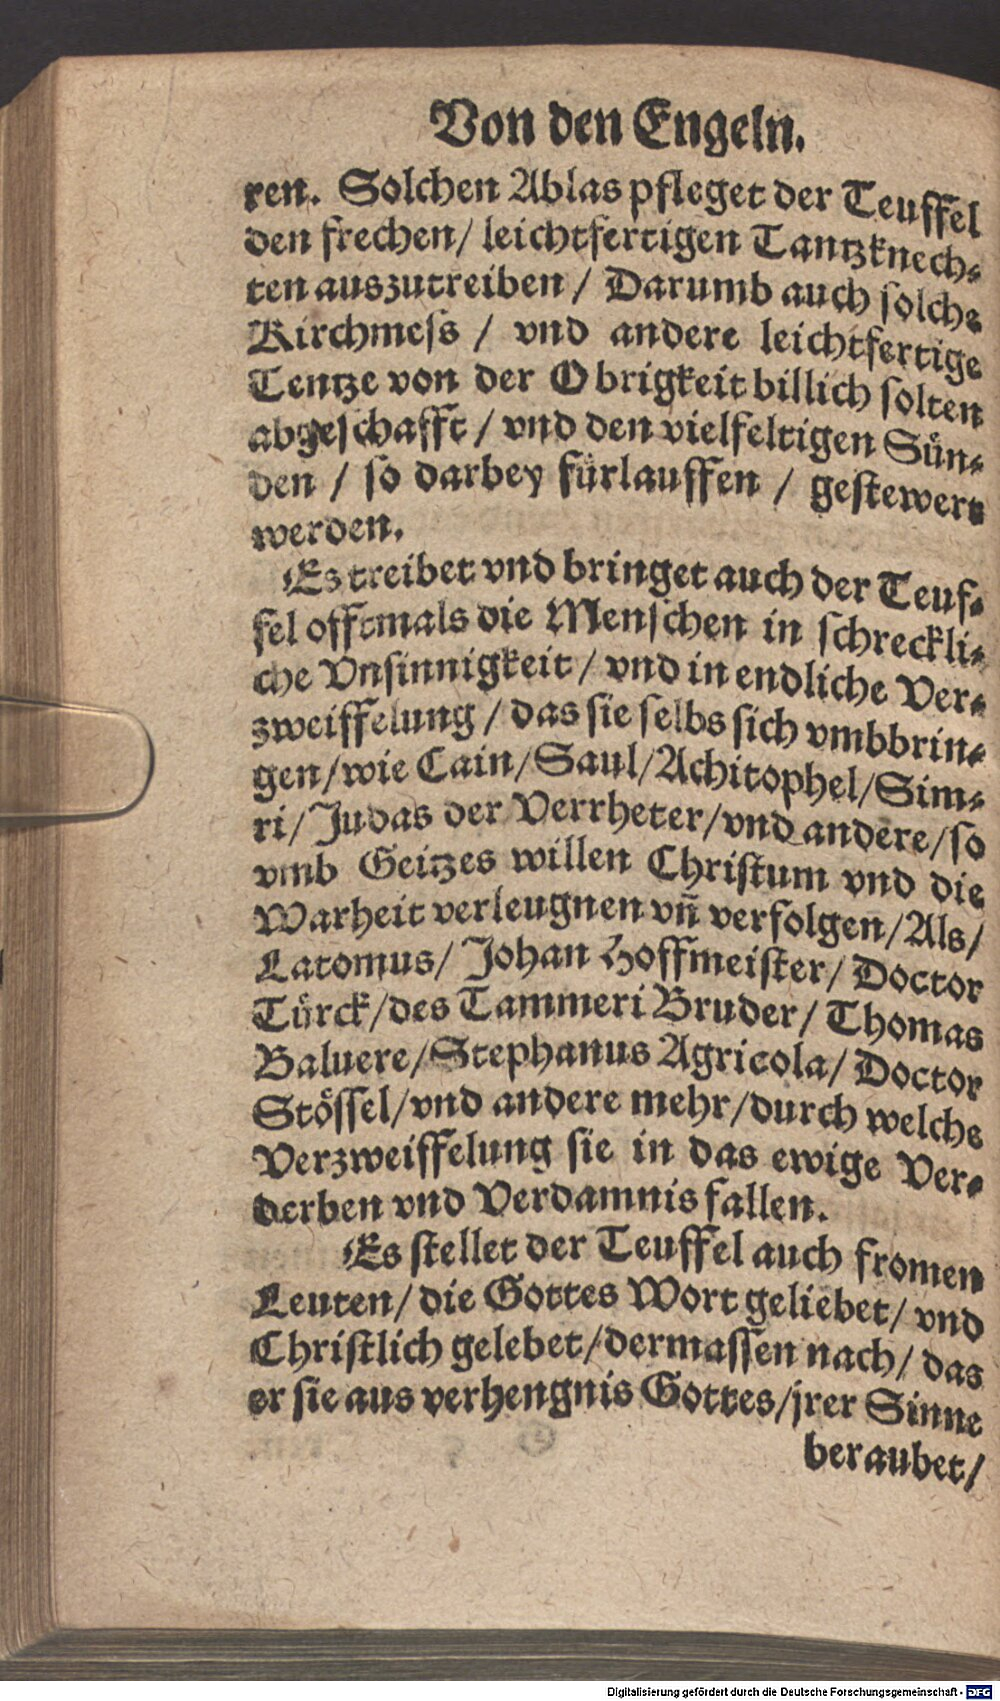 Von den Engeln.
ren. Solchen Ablas pfleget der Teuffel
den frechen/ leichtfertigen Tantzknech⸗
ten auszutreiben / Darumb auch solche
Kirchmess / vnd andere leichtfertige
Tentze von der Obrigkeit billich solten
abgeschafft / vnd den vielfeltigen Sün⸗
den / so darbey fürlauffen / gestewert
werden.
Es treibet vnd bringet auch der Teuf⸗
fel offtmals die Menschen in schreckli⸗
che Vnsinnigkeit / vnd in endliche Ver⸗
zweiffelung / das sie selbs sich vmbbrin⸗
gen/wie Cain/Saul/Achitophel/Sim⸗
ri/Judas der Verrheter/vnd andere/so
vmb Geitzes willen Christum vnd die
Warheit verleugnen vñ verfolgen/Als/
Latomus/ Johan Hoffmeister/ Doctor
Türck/des Tammeri Bruder/ Thomas
Baluere/Stephanus Agricola/ Doctor
Stössel/vnd andere mehr/durch welche
Verzweiffelung sie in das ewige Ver⸗
derben vnd Verdamnis fallen.
Es stellet der Teuffel auch fromen
Leuten/ die Gottes Wort geliebet/ vnd
Christlich gelebet/dermassen nach/ das
er sie aus verhengnis Gottes/jrer Sinne
beraubet/
Digitalisierung gefördert durch die Deutsche Forschungsgemeinschaft - DFG